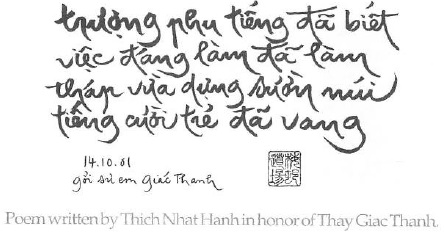 trượng phu tiếng đã biết
việc đáng làm đã làm
tháp vừa dựng sườn núi
tiếng cười trẻ đã vang
14.10.01
gởi sư em Giác Thanh
Poem written by Thich Nhat Hanh in honor of Thay Giac Thanh.